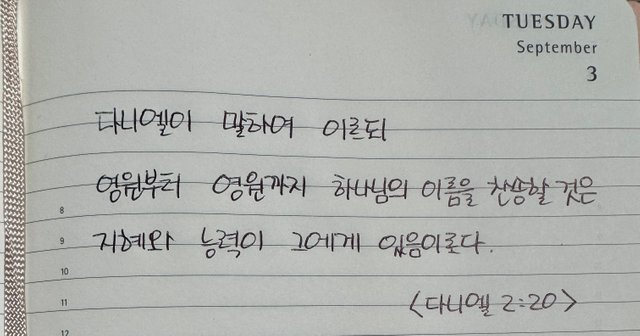 TUESDAY
September
3
다니엘이 말하여 이르되
영원부터 영원까지 하나님의 이름을 찬송할 것은
8
지혜와 능력이 그에게 있음이로다.
9
10
<다니엘 2:20>
11
12